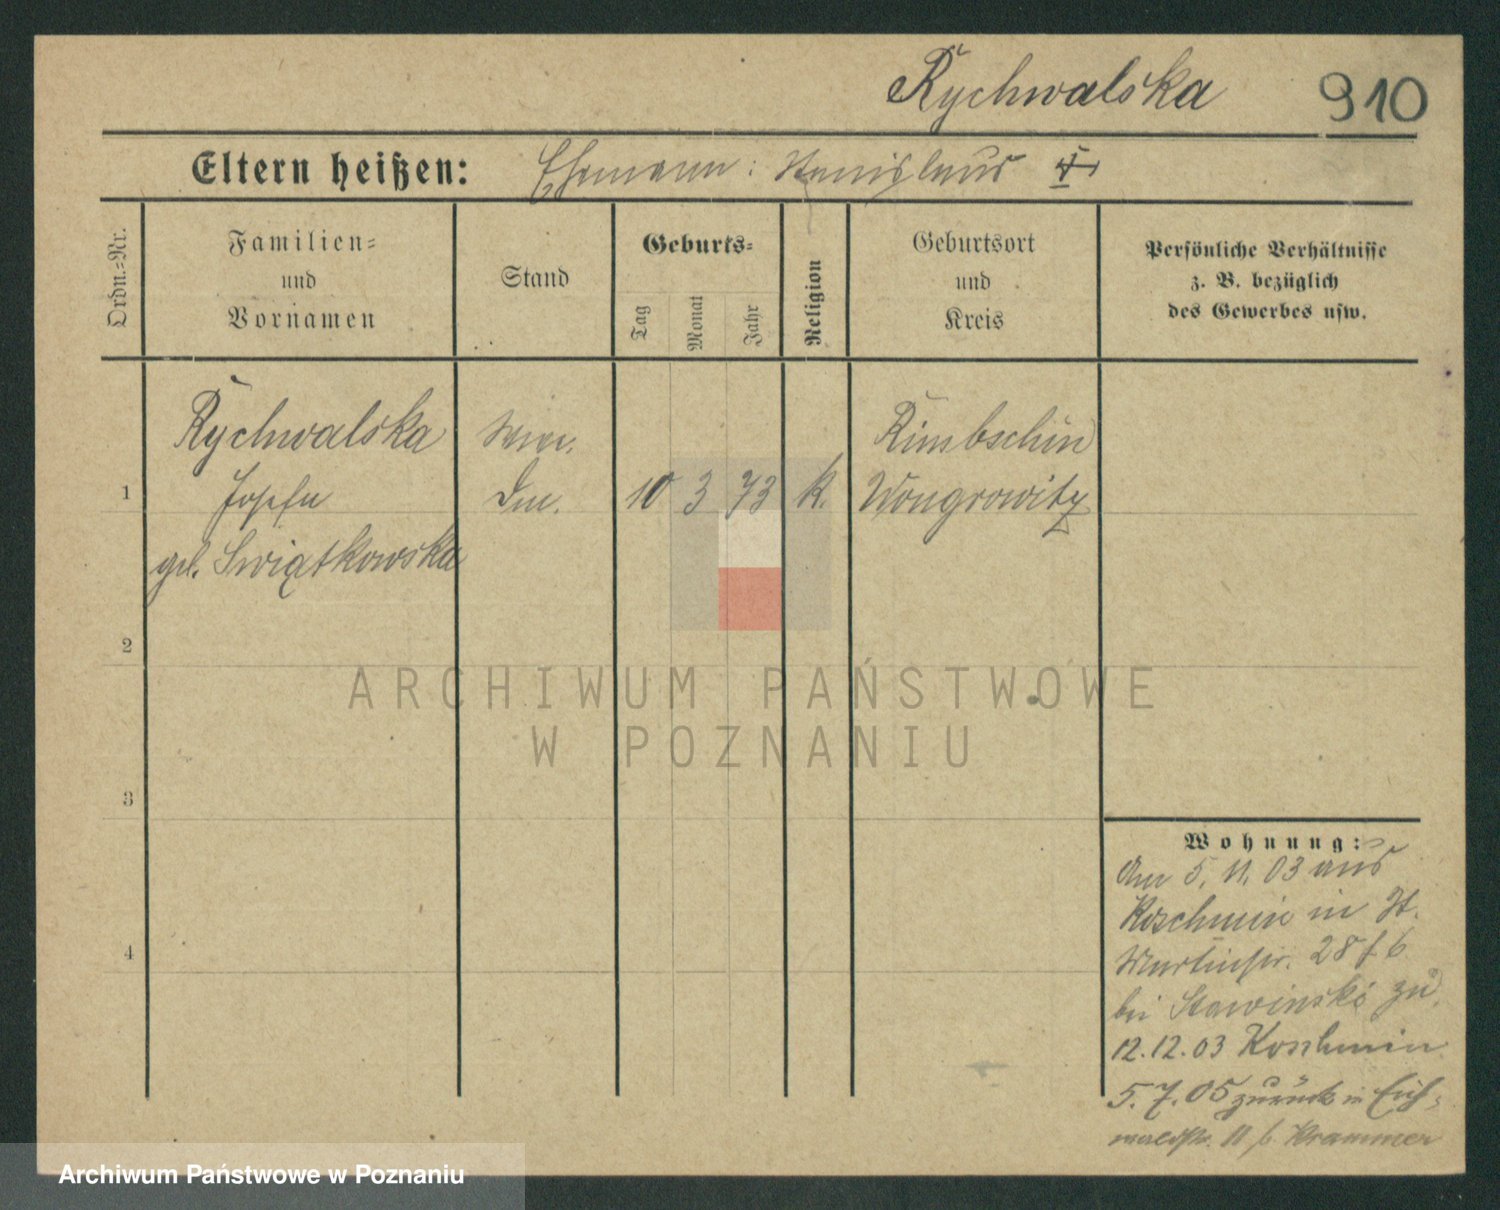 Rychwalska 910
Eltern heißen: Ehemann: Stanislaus
Ordn.=Nr.
Familien=
und
Vornamen
Stand
Geburts=
Tag
Monat
Jahr
Religion
Geburtsort
und
Kreis
Persönliche Verhältnisse
z. B. bezüglich
des Gewerbes usw.
Rychwalska
1 Josefa
geb. Swiątkowska
10 3 73 k.
Wongrowitz
2
3
4
Wohnung:
Am 5. 11. 03 aus
Koschmin in St.
Martinstr. 28 f b
bei Stawinski zu.
12.12.03 Koschmin
5. 7. 05 zurück in Eich=
waldstr. 11 b. Krammer
ARCHIWUM PAŃSTWOWE
W POZNANIU
Archiwum Państwowe w Poznaniu